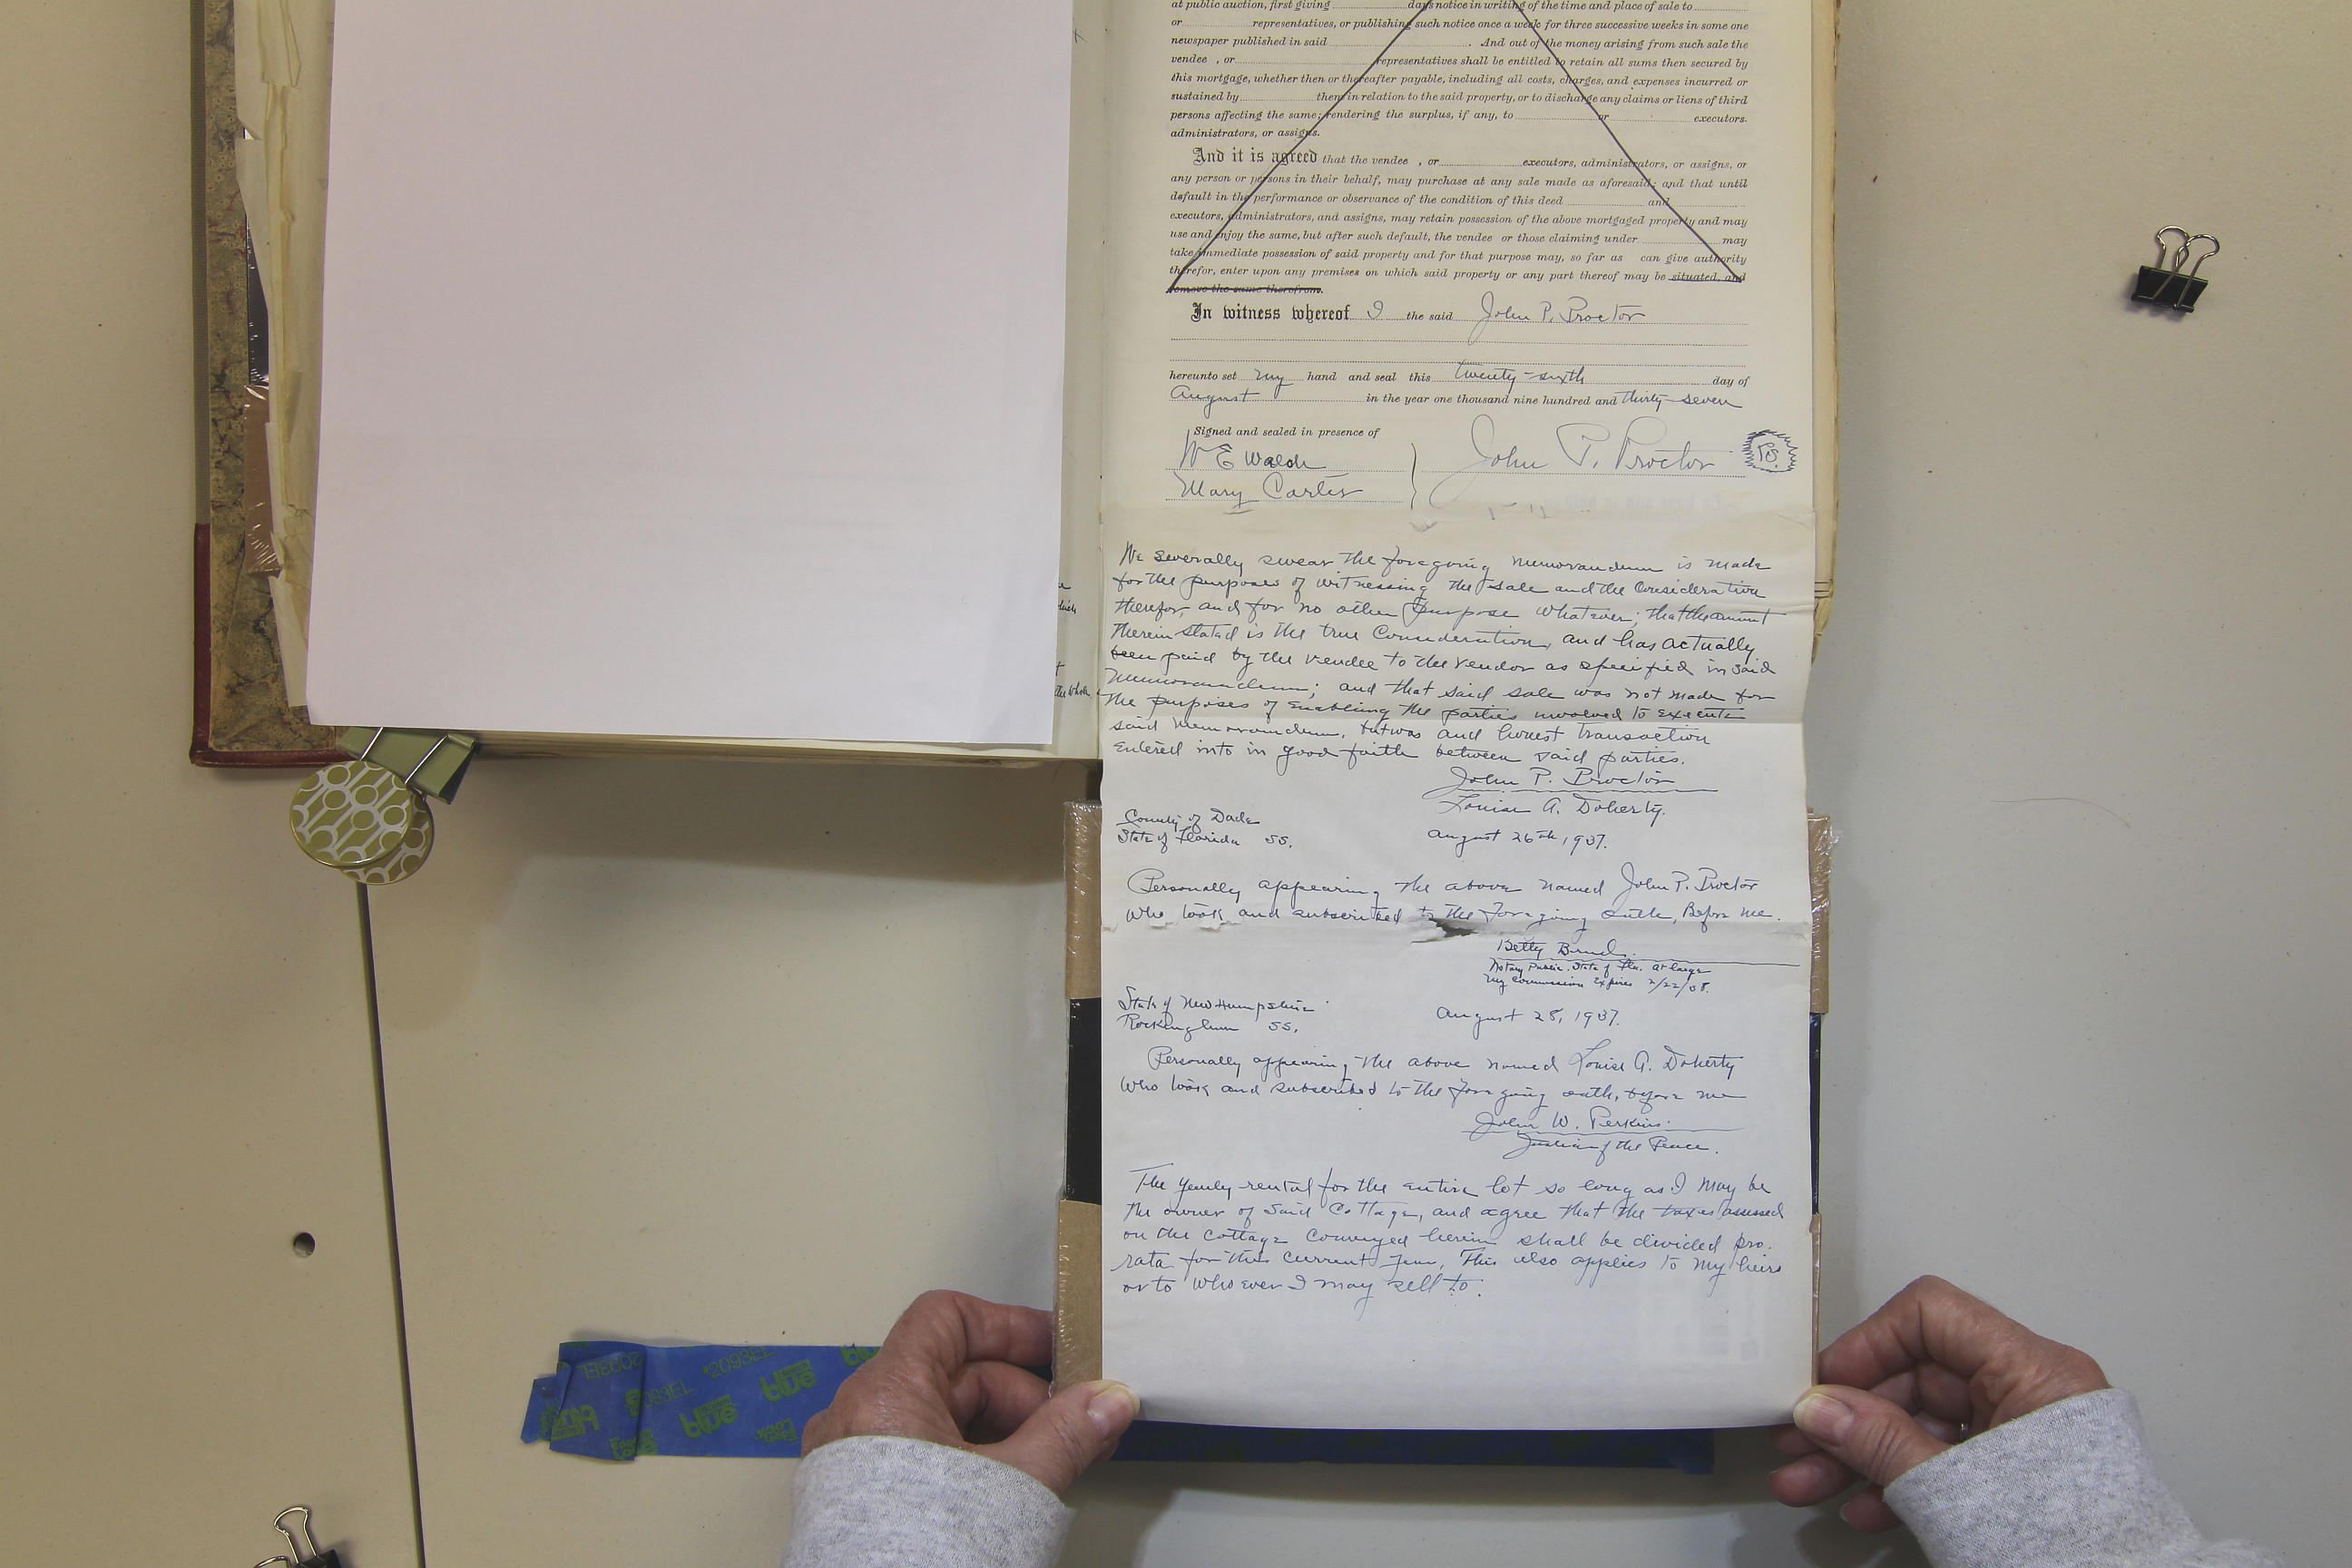 at public auction, first giving days notice in writing of the time and place of sale to
or representatives, or publishing such notice once a week for three successive weeks in some one
newspaper published in said . And out of the money arising from such sale the
vendee , or representatives shall be entitled to retain all sums then secured by
this mortgage, whether then or thereafter payable, including all costs, charges, and expenses incurred or
sustained by them in relation to the said property, or to discharge any claims or liens of third
persons affecting the same; rendering the surplus, if any, to or executors.
administrators, or assigns.
And it is agreed that the vendee , or executors, administrators, or assigns, or
any person or persons in their behalf, may purchase at any sale made as aforesaid; and that until
default in the performance or observance of the condition of this deed and
executors, administrators, and assigns, may retain possession of the above mortgaged property and may
use and enjoy the same, but after such default, the vendee or those claiming under may
take immediate possession of said property and for that purpose may, so far as can give authority
therefor, enter upon any premises on which said property or any part thereof may be situated, and
remove the same therefrom.
In witness whereof I the said John P. Proctor
hereunto set my hand and seal this twenty-sixth day of
August in the year one thousand nine hundred and thirty-seven
Signed and sealed in presence of
W E Walsh
John P. Proctor
Mary Carter
We severally swear the foregoing memorandum is made
for the purpose of witnessing the sale and the Consideration
therefor, and for no other purpose whatever; that the amount
therein stated is the true Consideration, and has actually
been paid by the vendee to the vendor as specified in said
Memorandum; and that said sale was not made for
the purposes of Enabling the parties involved to Execute
said Memorandum, but was and honest transaction
Entered into in good faith between said parties.
John P. Proctor
Louise A. Doherty.
County of Dade
State of Florida SS. August 26th, 1937.
Personally appearing the above named John P. Proctor
Who took and subscribed to the foregoing oath, Before me.
Betty
Notary Public, State of Fla. at large
My Commission Expires 2/22/38.
State of New Hampshire
Rockingham SS. August 28, 1937.
Personally appearing the above named Louise A. Doherty
Who took and subscribed to the foregoing oath, before me
John W. Perkins.
Justice of the Peace.
The yearly rental for the entire lot so long as I may be
the owner of Said Cottage, and agree that the taxes assessed
on the cottage Conveyed herein shall be divided pro.
rata for this current year, This also applies to my heirs
or to whoever I may sell to.